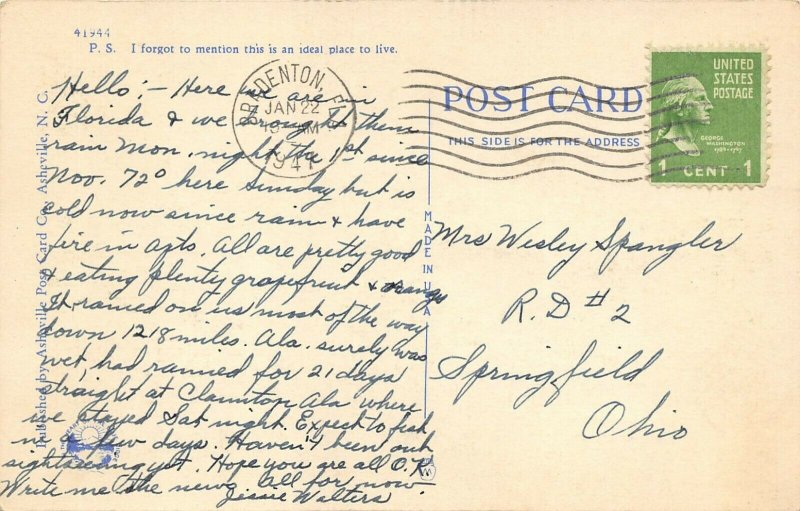 41944
P. S. I forgot to mention this is an ideal place to live.
Hello :- Here we are in
Florida & we brought them
rain Mon. night the 1st since
Nov. 72° here Sunday but is
cold now since rain & have
fire in apts. All are pretty good
& eating plenty grapefruit & orange
It rained on us most of the way
down 1218 miles. Ala. surely was
wet, had rained for 21 days
straight at Ala where
we stayed Sat night. Expect to fish
in a few days. Haven't been out
sightseeing yet. Hope you are all O.K.
Write me the news All for now
Jessie Walters
Published by Asheville Post Card Co., Asheville, N. C.
MADE IN U.S.A.
BRADENTON, FLA.
JAN 22
PM
1941
POST CARD
THIS SIDE IS FOR THE ADDRESS
UNITED
STATES
POSTAGE
GEORGE
WASHINGTON
1 CENT 1
Mrs Wesley Spangler
R. D # 2
Springfield
Ohio